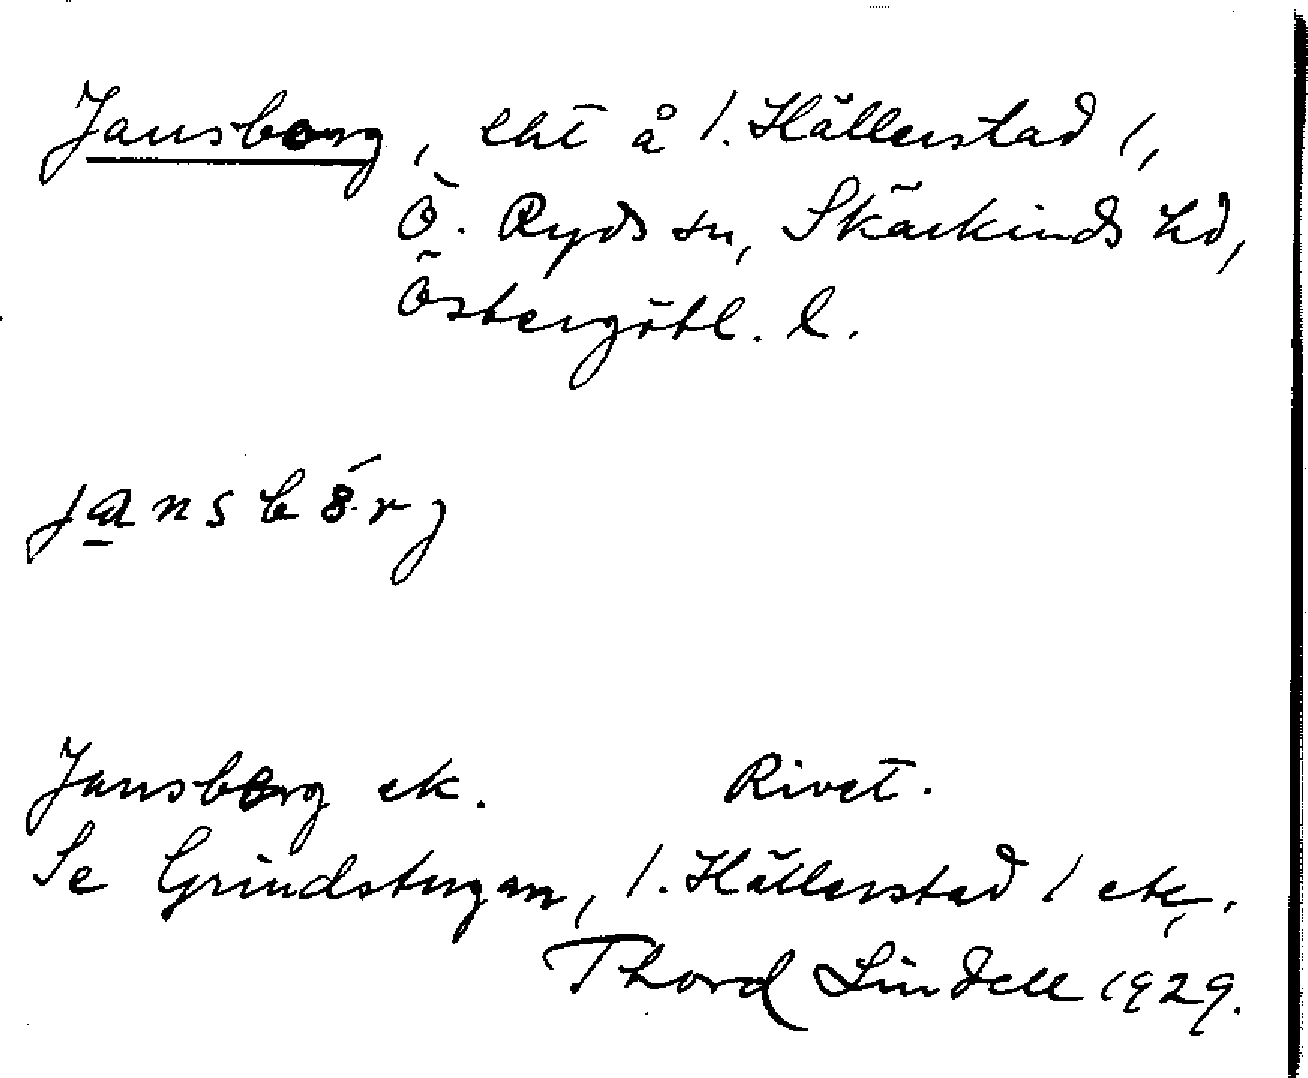 Jansborg, lht å 1. Hällerstad 1,
Ö. Ryds sn, Skärkinds hd,
Östergötl. l.
jansbórj
Jansborg ek. Rivet.
Se Grindstugan, 1. Hällerstad 1 ek.
Thord Lindell 1929.